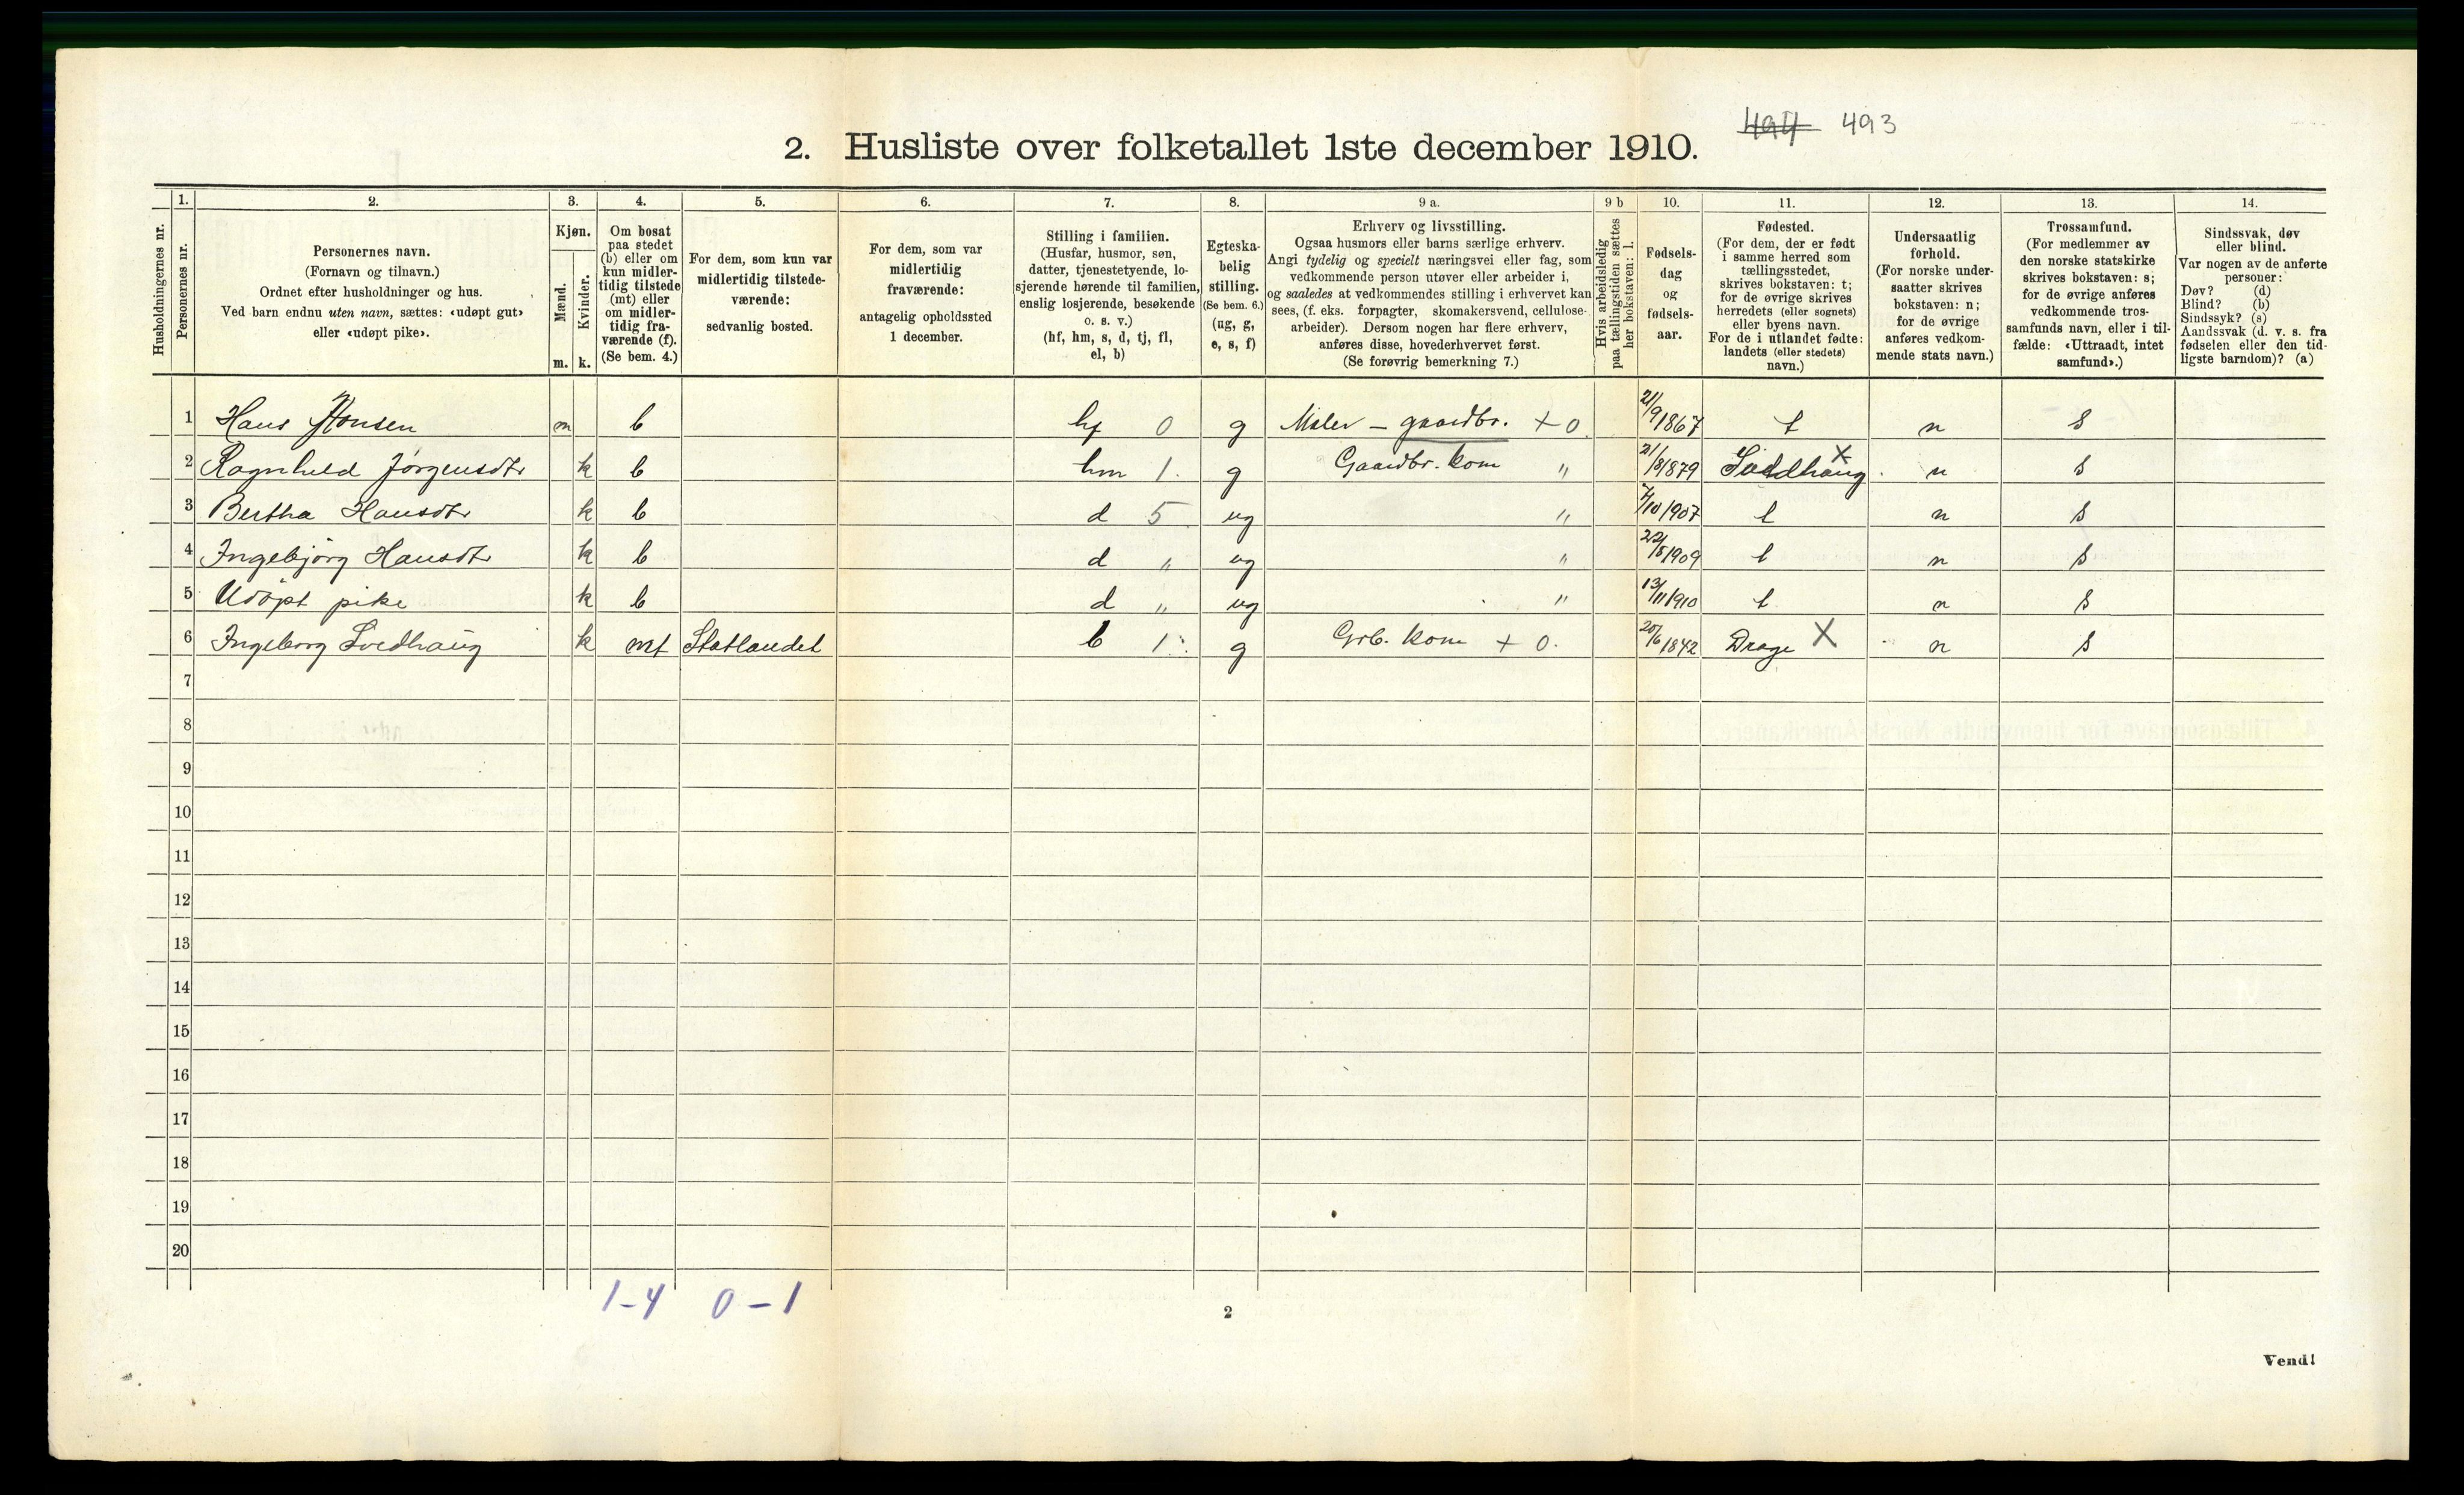 494 493
2. Husliste over folketallet 1ste december 1910.
Husholdningernes nr.
1. Personernes nr.
2. Personernes navn.
(Fornavn og tilnavn.)
Ordnet efter husholdninger og hus.
Ved barn endnu uten navn, sættes: «udøpt gut»
eller «udøpt pike».
3. Kjøn.
Mænd. Kvinder.
m. k.
4. Om bosat
paa stedet
(b) eller om
kun midler-
tidig tilstede
(mt) eller
om midler-
tidig fra-
værende (f).
(Se bem. 4.)
5. For dem, som kun var
midlertidig tilstede-
værende:
sedvanlig bosted.
6. For dem, som var
midlertidig
fraværende:
antagelig opholdssted
1 december.
7. Stilling i familien.
(Husfar, husmor, søn,
datter, tjenestetyende, lo-
sjerende hørende til familien,
enslig losjerende, besøkende
o. s. v.)
(hf, hm, s, d, tj, fl,
el, b)
8. Egteska-
belig
stilling.
(Se bem. 6.)
(ug, g,
e, s, f)
9 a. Erhverv og livsstilling.
Ogsaa husmors eller barns særlige erhverv.
Angi tydelig og specielt næringsvei eller fag, som
vedkommende person utøver eller arbeider i,
og saaledes at vedkommendes stilling i erhvervet kan
sees, (f. eks. forpagter, skomakersvend, cellulose-
arbeider). Dersom nogen har flere erhverv,
anføres disse, hovederhvervet først.
(Se forøvrig bemerkning 7.)
9 b Hvis arbeidsledig
paa tællingstiden sættes
her bokstaven: l.
10. Fødsels-
dag
og
fødsels-
aar.
11. Fødested.
(For dem, der er født
i samme herred som
tællingsstedet,
skrives bokstaven: t;
for de øvrige skrives
herredets (eller sognets)
eller byens navn.
For de i utlandet fødte:
landets (eller stedets)
navn.)
12. Undersaatlig
forhold.
(For norske under-
saatter skrives
bokstaven: n;
for de øvrige
anføres vedkom-
mende stats navn.)
13. Trossamfund.
(For medlemmer av
den norske statskirke
skrives bokstaven: s;
for de øvrige anføres
vedkommende tros-
samfunds navn, eller i til-
fælde: «Uttraadt, intet
samfund».)
14. Sindssvak, døv
eller blind.
Var nogen av de anførte
personer:
Døv? (d)
Blind? (b)
Sindssyk? (s)
Aandssvak (d. v. s. fra
fødselen eller den tid-
ligste barndom)? (a)
1 Hans Hansen m b hf 0 g Maler - gaardbr. + 0 21/9 1867 t n s
2 Ragnhild Jørgensdtr k b hm 1 g Gaardbr. kom " 21/8 1879 X n s
3 Bertha Hansdtr k b d 5 ug " 7/10 1907 t n s
4 Ingebjørg Hansdtr k b d " ug " 22/5 1909 t n s
5 Udøpt pike k b d " ug " 13/11 1910 t n s
6 Ingeborg k mt Statlandet b 1 g Grb. kom + 0. 20/6 1842 Drage X n s
7
8
9
10
11
12
13
14
15
16
17
18
19
20
1-4 0-1
2
Vend!